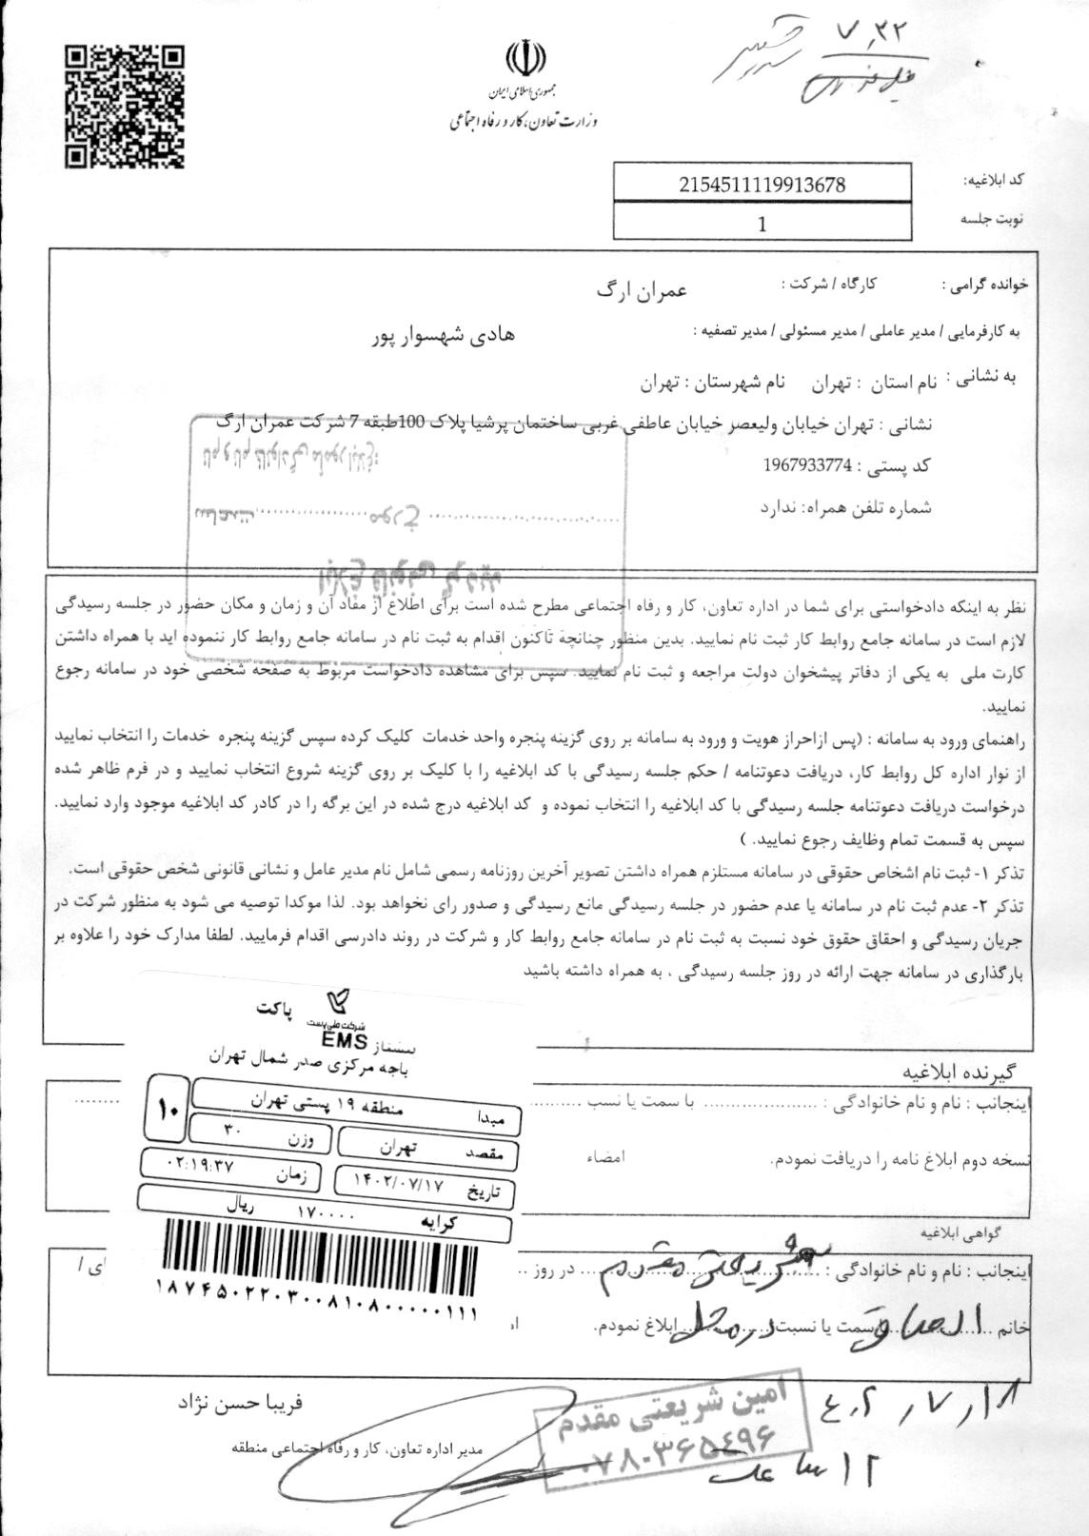 ۷٫۳۲
جمهوری اسلامی ایران
وزارت تعاون، کار و رفاه اجتماعی
کد ابلاغیه: 2154511119913678
نوبت جلسه 1
خوانده گرامی : کارگاه / شرکت : عمران ارگ
به کارفرمایی / مدیر عاملی / مدیر مسئولی / مدیر تصفیه : هادی شهسوار پور
به نشانی : نام استان : تهران نام شهرستان : تهران
نشانی : تهران خیابان ولیعصر خیابان عاطفی غربی ساختمان پرشیا پلاک 100طبقه 7 شرکت عمران ارگ
کد پستی : 1967933774
شماره تلفن همراه: ندارد
نام و نام خانوادگی مامور ابلاغ:
مورخ ............ ساعت
ابلاغ قانونی گردید
نظر به اینکه دادخواستی برای شما در اداره تعاون، کار و رفاه اجتماعی مطرح شده است برای اطلاع از مفاد آن و زمان و مکان حضور در جلسه رسیدگی
لازم است در سامانه جامع روابط کار ثبت نام نمایید. بدین منظور چنانچه تاکنون اقدام به ثبت نام در سامانه جامع روابط کار ننموده اید با همراه داشتن
کارت ملی به یکی از دفاتر پیشخوان دولت مراجعه و ثبت نام نمایید. سپس برای مشاهده دادخواست مربوط به صفحه شخصی خود در سامانه رجوع
نمایید.
راهنمای ورود به سامانه : (پس ازاحراز هویت و ورود به سامانه بر روی گزینه پنجره واحد خدمات کلیک کرده سپس گزینه پنجره خدمات را انتخاب نمایید
از نوار اداره کل روابط کار، دریافت دعوتنامه / حکم جلسه رسیدگی با کد ابلاغیه را با کلیک بر روی گزینه شروع انتخاب نمایید و در فرم ظاهر شده
درخواست دریافت دعوتنامه جلسه رسیدگی با کد ابلاغیه را انتخاب نموده و کد ابلاغیه درج شده در این برگه را در کادر کد ابلاغیه موجود وارد نمایید.
سپس به قسمت تمام وظایف رجوع نمایید. )
تذکر ۱- ثبت نام اشخاص حقوقی در سامانه مستلزم همراه داشتن تصویر آخرین روزنامه رسمی شامل نام مدیر عامل و نشانی قانونی شخص حقوقی است.
تذکر ۲- عدم ثبت نام در سامانه یا عدم حضور در جلسه رسیدگی مانع رسیدگی و صدور رای نخواهد بود. لذا موکدا توصیه می شود به منظور شرکت در
جریان رسیدگی و احقاق حقوق خود نسبت به ثبت نام در سامانه جامع روابط کار و شرکت در روند دادرسی اقدام فرمایید. لطفا مدارک خود را علاوه بر
بارگذاری در سامانه جهت ارائه در روز جلسه رسیدگی ، به همراه داشته باشید
پاکت
شرکت ملی پست
پیشتاز EMS
باجه مرکزی صدر شمال تهران
مبدا منطقه ۱۹ پستی تهران ۱۰
مقصد تهران وزن ۳۰
تاریخ ۱۴۰۲/۰۷/۱۷ زمان ۰۲:۱۹:۳۷
کرایه ۱۷۰۰۰۰ ریال
۱۸۷۴۵۰۲۲۰۳۰۰۸۱۰۸۰۰۰۰۰۱۱۱
گیرنده ابلاغیه
اینجانب : نام و نام خانوادگی : .................... با سمت یا نسب ..........
نسخه دوم ابلاغ نامه را دریافت نمودم. امضاء
گواهی ابلاغیه
اینجانب : نام و نام خانوادگی : شریعتی مقدم در روز .. ای /
خانم الصاق سمت یا نسبت در محل ابلاغ نمودم.
فریبا حسن نژاد
مدیر اداره تعاون، کار و رفاه اجتماعی منطقه
امین شریعتی مقدم
۰۷۸۰۳۶۵۴۹۶
۴۰۲ / ۷ / ۱۸
ساعت ۱۲